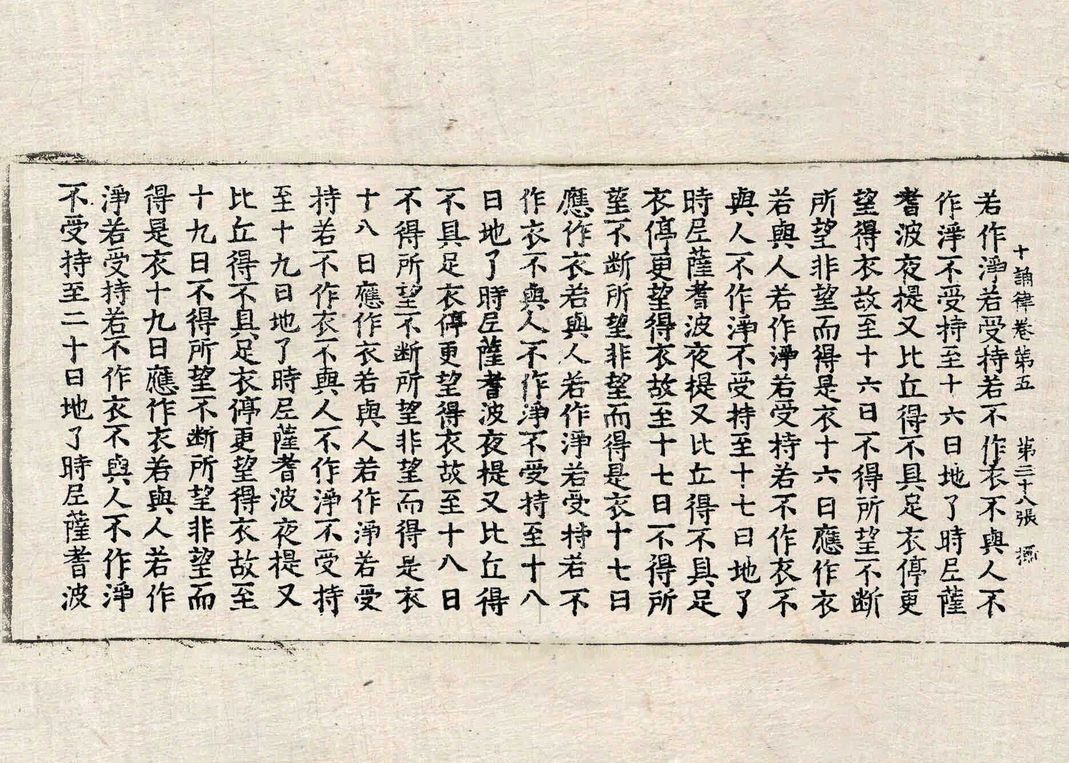 十誦律卷第五 第三十八張 攝
若作淨若受持若不作衣不與人不
作淨不受持至十六日地了時尼薩
耆波夜提又比丘得不具足衣停更
望得衣故至十六日不得所望不斷
所望非望而得是衣十六日應作衣
若與人若作淨若受持若不作衣不
與人不作淨不受持至十七日地了
時尼薩耆波夜提又比丘得不具足
衣停更望得衣故至十七日不得所
望不斷所望非望而得是衣十七日
應作衣若與人若作淨若受持若不
作衣不與人不作淨不受持至十八
日地了時尼薩耆波夜提又比丘得
不具足衣停更望得衣故至十八日
不得所望不斷所望非望而得是衣
十八日應作衣若與人若作淨若受
持若不作衣不與人不作淨不受持
至十九日地了時尼薩耆波夜提又
比丘得不具足衣停更望得衣故至
十九日不得所望不斷所望非望而
得是衣十九日應作衣若與人若作
淨若受持若不作衣不與人不作淨
不受持至二十日地了時尼薩耆波